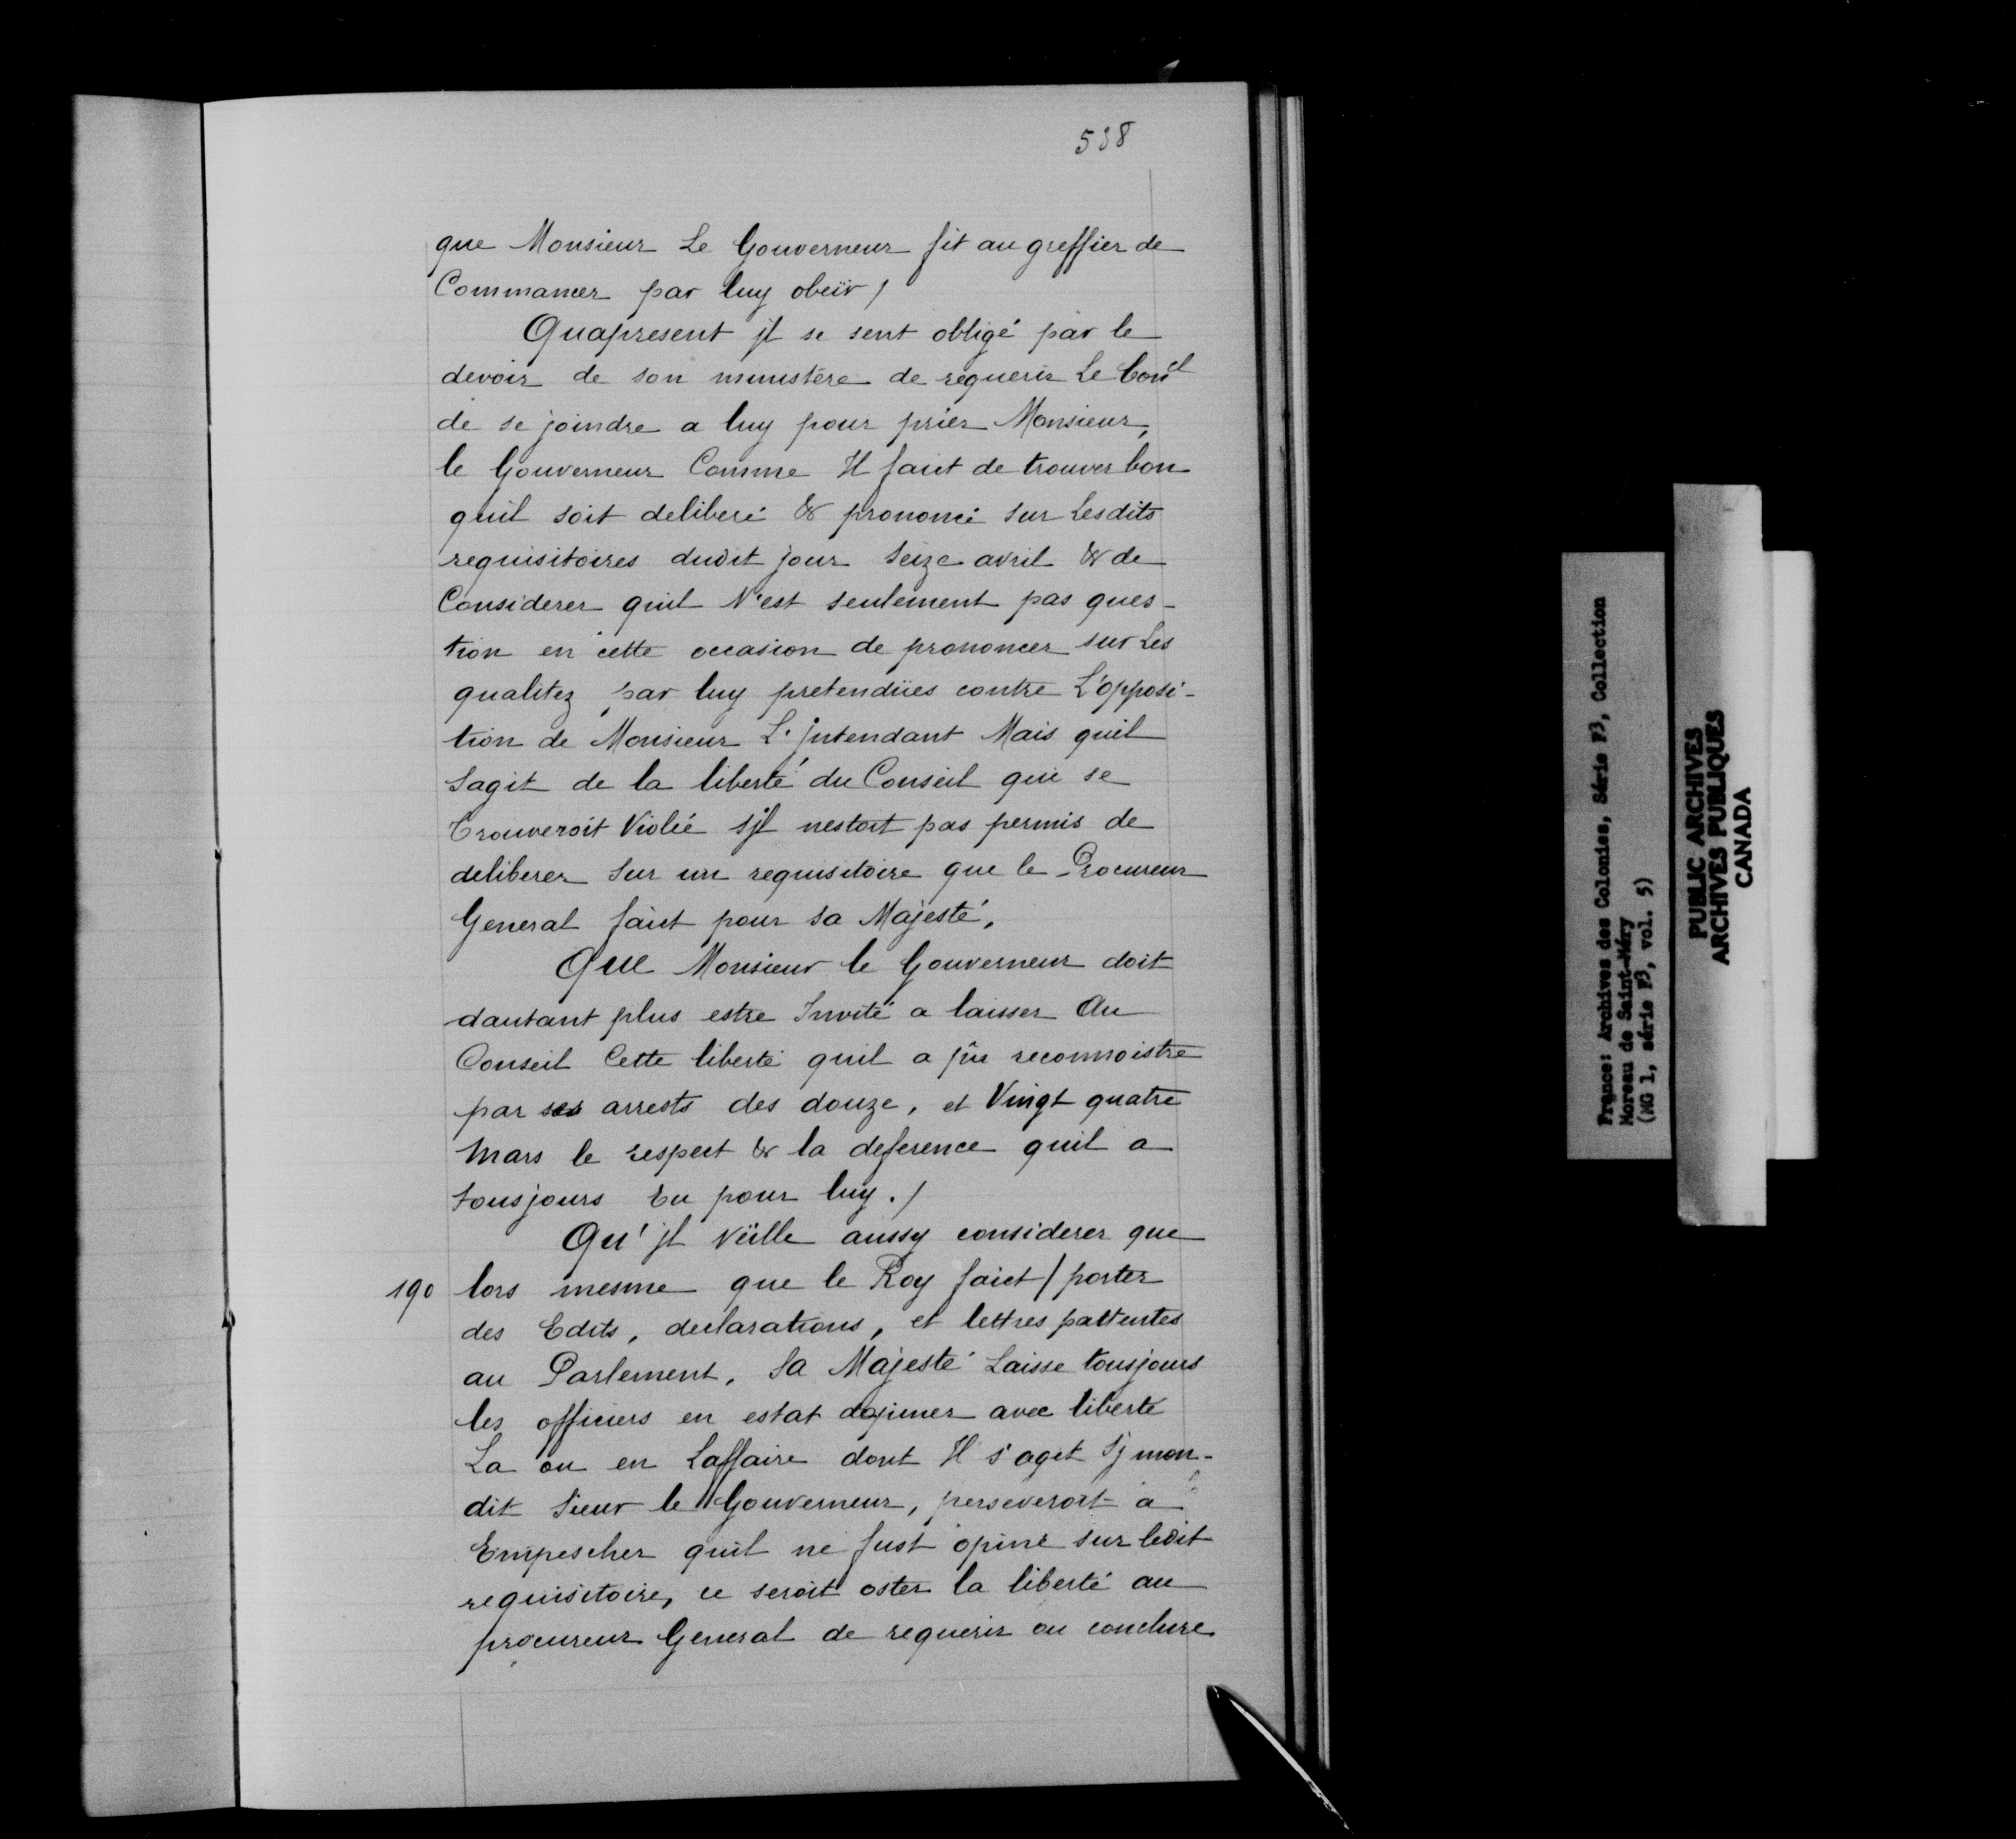 538
que Monsieur Le Gouverneur fit au greffier de
Commancer par luy obeïr /
Quapresent jl se sent obligé par le
devoir de son ministère de requerir Le Conel
de se joindre a luy pour prier Monsieur,
le Gouverneur Comme Il faict de trouver bon
quil soit deliberé & prononcé sur Lesdits
requisitoires dudit jour Seize avril & de
Considerer quil N'est seulement pas ques-
tion en cette occasion de prononcer sur Les
qualitez par luy pretendües contre L'opposi-
tion de Monsieur L'jntendant Mais quil
Sagit de la liberté du Conseil qui se
Trouveroit Violée sjl nestoit pas permis de
deliberer Sur un requisitoire que le Procureur
General faict pour sa Majesté,
Que Monsieur le Gouverneur doit
dautant plus estre Invité a laisser Au
Conseil Cette liberté quil a pû reconnoistre
par ses arrests des douze, et Vingt quatre
Mars le respect & la deference quil a
tousjours Eu pour luy. /
Qu'jl veülle aussy considerer que
190 lors mesme que le Roy faict / porter
des Edits, declarations, et lettres pattentes
au Parlement, Sa Majesté Laisse tousjours
les officiers en estat dopiner avec liberté
La ou en Laffaire dont Il s'agit Sj mon-
dit Sieur le Gouverneur, perseveroit a
Empescher quil ne fust opiné sur ledit
requisitoire, ce seroit oster la liberté au
procureur General de requerir ou conclure
France: Archives des Colonies, Série F3, Collection
Moreau de Saint-Méry
(MG 1, série F3, vol. 5)
PUBLIC ARCHIVES
ARCHIVES PUBLIQUES
CANADA